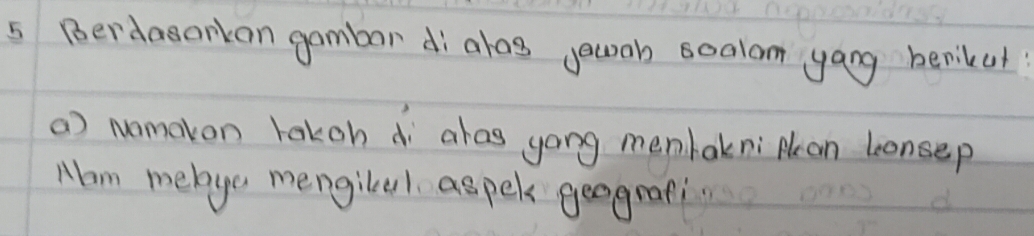 5 Berdasarkan gambar di atas jawab soalam yang berikut:
a) Namakan tokoh di atas yang mentaknifkan konsep
Alam melayu mengikut aspek geografi.